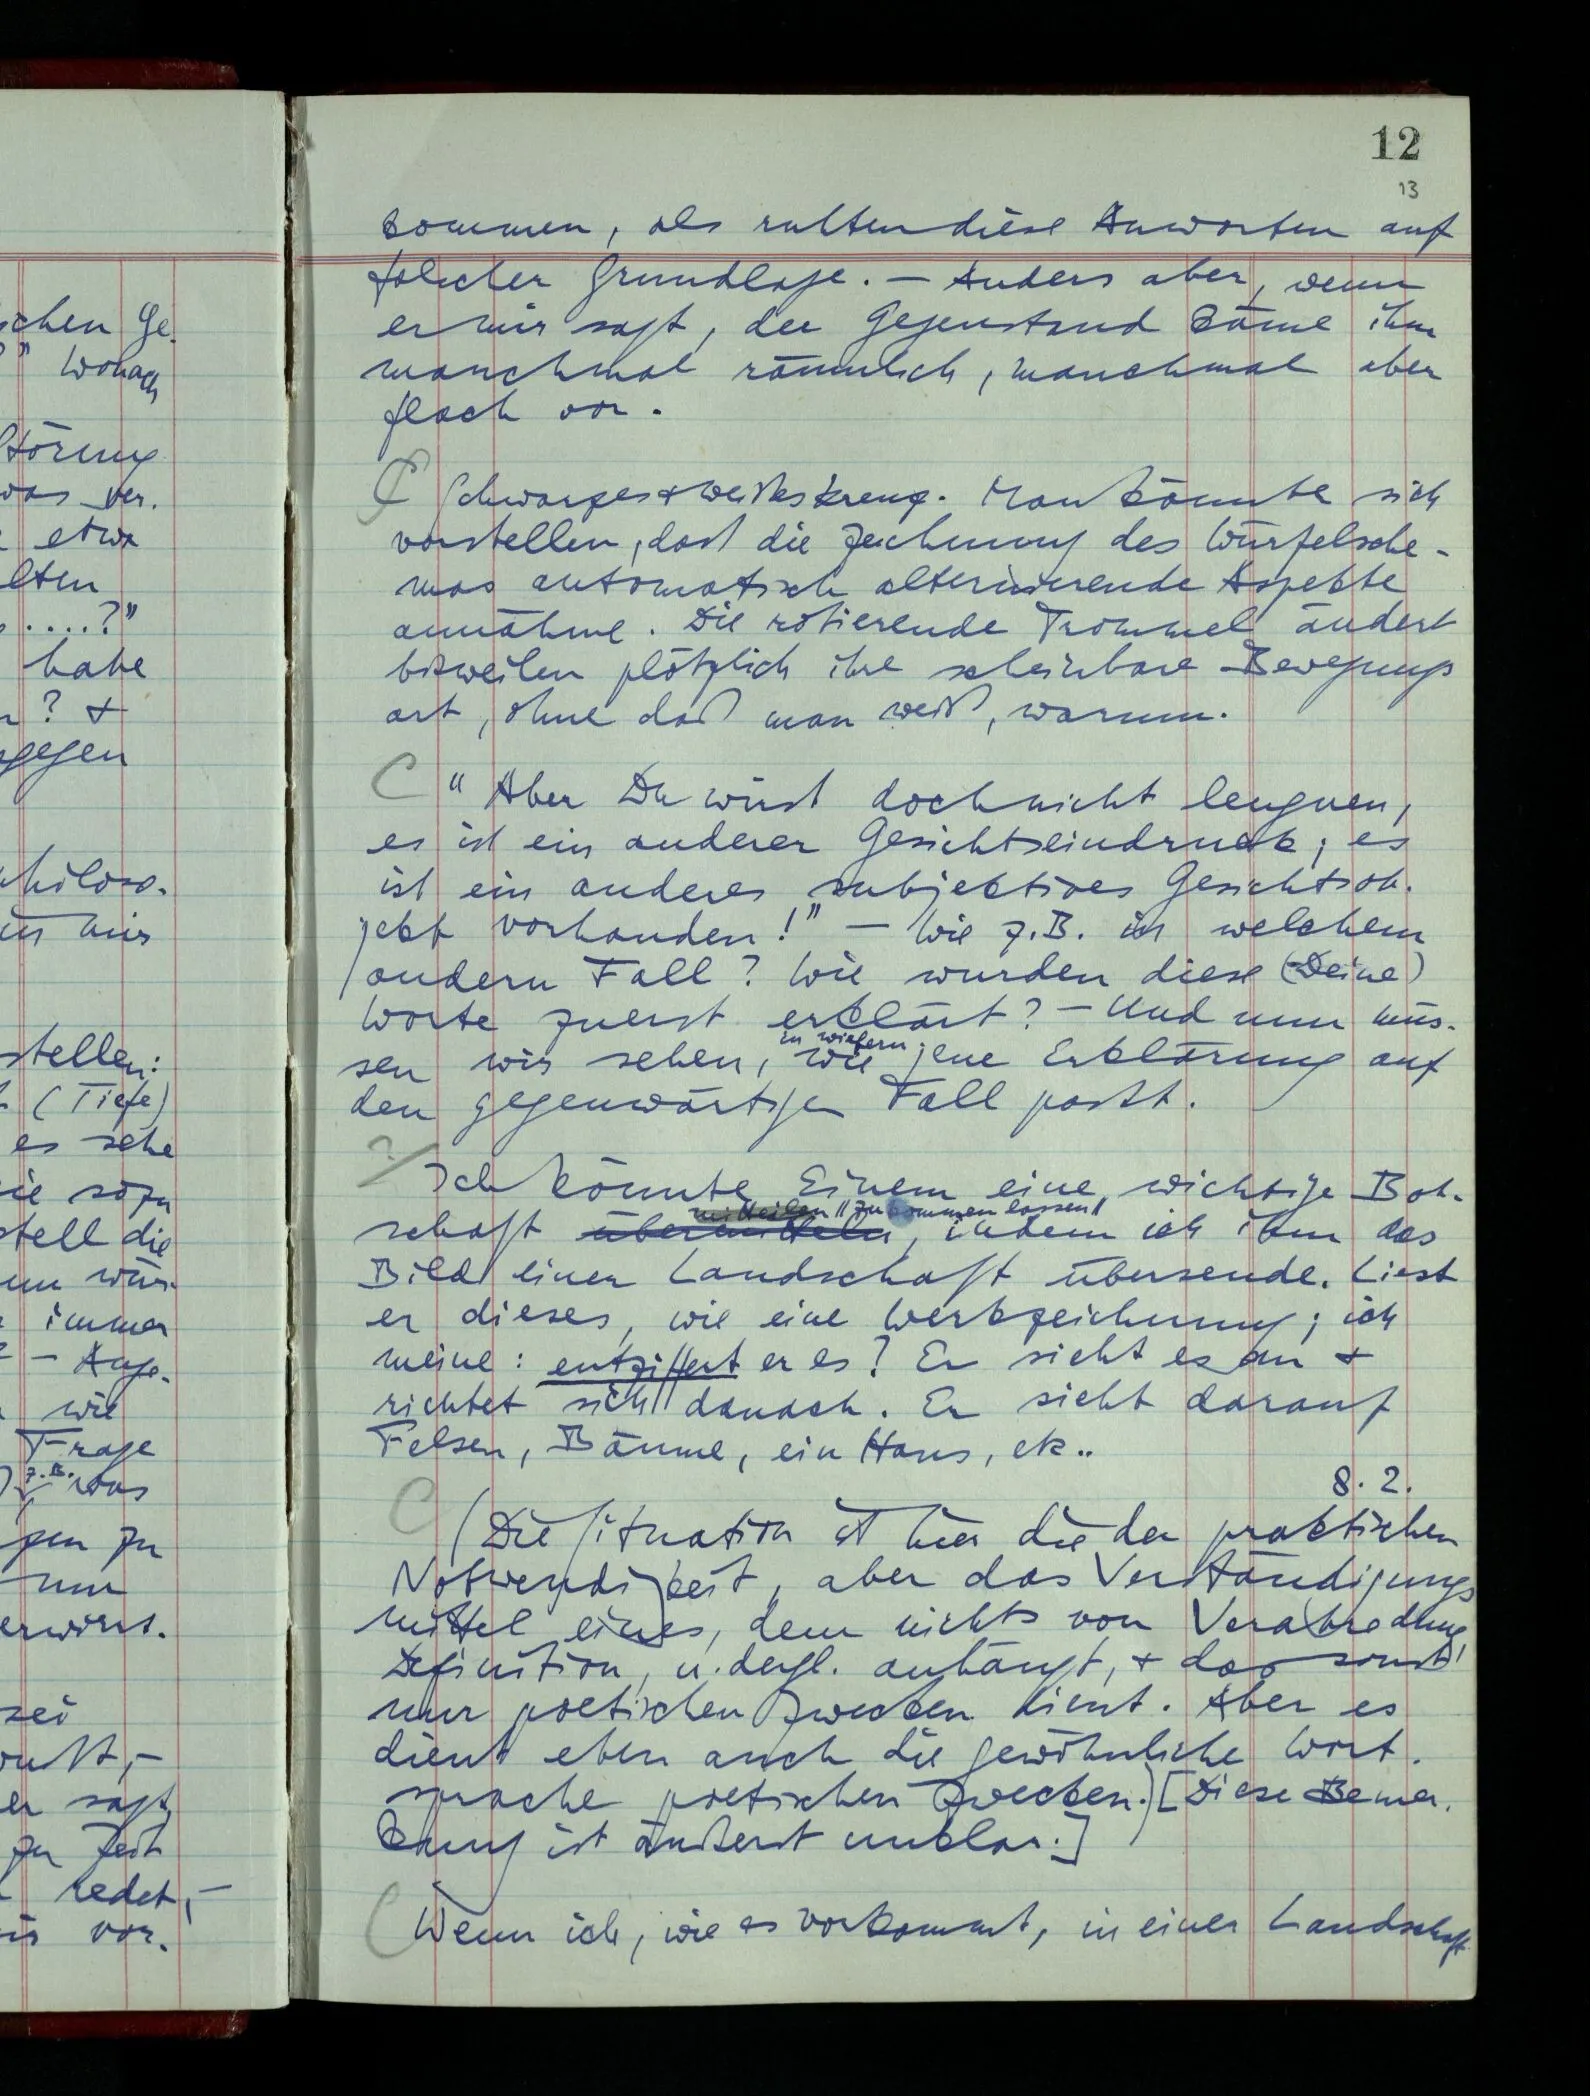 12
13
kommen, als ruhten diese Anworten auf
solcher Grundlage. – Anders aber, wenn
er mir sagt, der Gegenstand käme ihm
manchmal räumlich, manchmal aber
flach vor.
Schwarzes & weißes Kreuz. Man könnte sich
vorstellen, daß die Zeichnung des Würfelsche-
mas automatisch alternierende Aspekte
annähme. Die rotierende Trommel ändert
bisweilen plötzlich ihre scheinbare Bewegungs
art, ohne daß man weiß, warum.
C " Aber Du wirst doch nicht leugnen,
es ist ein anderer Gesichtseindruck; es
ist ein anderes subjektives Gesichtsob-
jekt vorhanden!" – Wie z.B. in welchem
andern Fall? Wie wurden diese (Deine)
Worte zuerst erklärt? – Und nun müs-
in wiefern
sen wir sehen, wie jene Erklärung auf
den gegenwärtigen Fall paßt.
?/ Ich könnte Einem eine wichtige Bot-
mitteilen "zukommen lassen"
schaft übermitteln, indem ich ihm das
Bild einer Landschaft übersende. Liest
er dieses, wie eine Werkzeichnung; ich
meine: entziffert er es? Er sieht es an &
richtet sich danach. Er sieht darauf
Felsen, Bäume, ein Haus, etc..
8. 2.
C (Die Situation ist hier die der praktischen
Notwendigkeit, aber das Verständigungs
mittel eines, dem nichts von Verabredung,
Definition, u. dergl. anhängt, & das sonst
nur poetischen Zwecken dient. Aber es
dient eben auch die gewöhnliche Wort-
sprache poetischen Zwecken.) [Diese Bemer-
kung ist äußerst unklar.]
C Wenn ich, wie es vorkommt, in einer Landschaft
schen Ge-
" Wonach
Störung
was ver-
etwa
....?"
habe
? &
philoso-
stellen:
(Tiefe)
es sehe
stell die
immer
wie
Frage
z.B. was
zu
nun
sei
er sagt
zu Zeit
redet, –
vor.